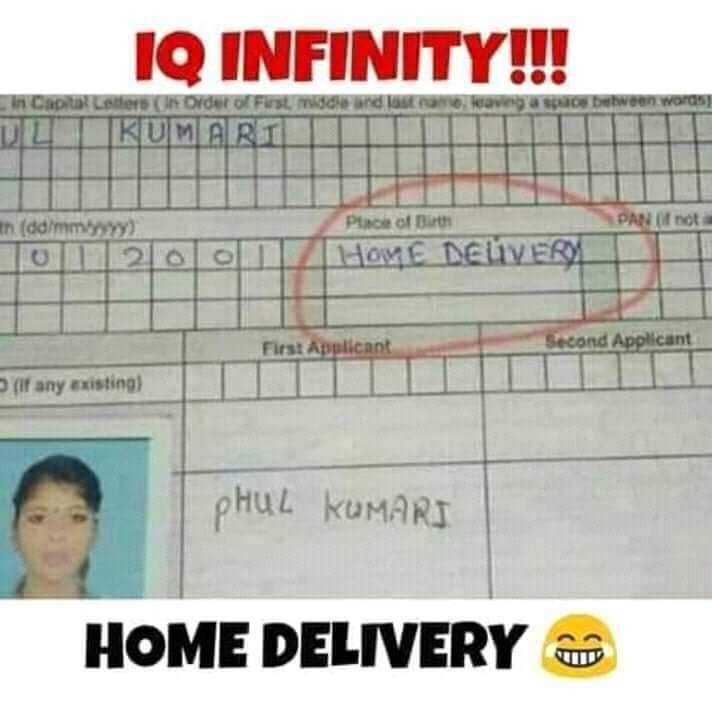 IQ INFINITY!!!
in Capital Letters (in Order of First, middle and last name, leaving a space between words)
UL KUMARI
th (dd/mm/yyyy) Place of Birth PAN (if not a
0 1 2 0 0 1 HOME DELIVERY
First Applicant Second Applicant
D (If any existing)
PHUL KUMARI
HOME DELIVERY 😁